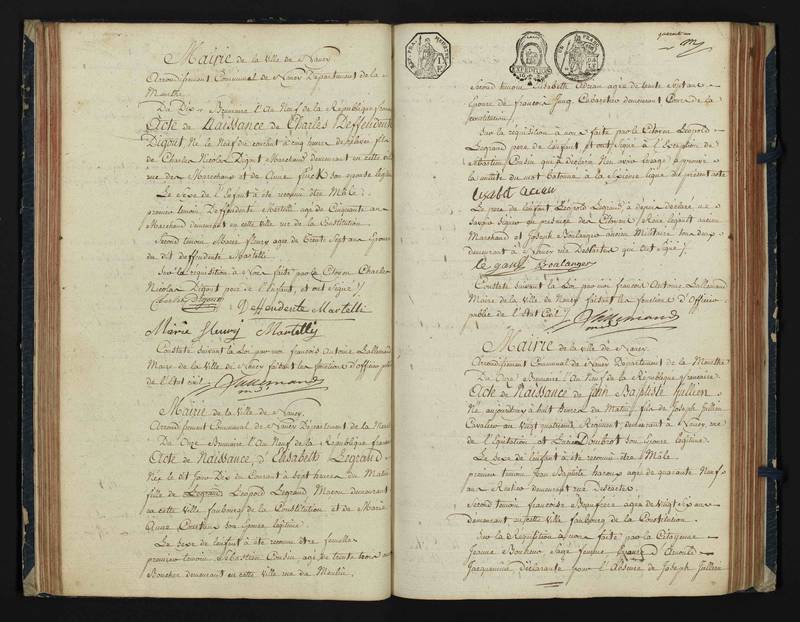 Mairie de la Ville de Nancy
Arrondissement Communal de Nancy Département de la
Meurthe.
Du Dix Brumaire l'An Neuf de la République française
Acte de Naissance de Charles Deffendente
Digout, Né le Neuf du courant à cinq heures
de Charles Nicolas Digout Marchand demeurant en cette ville
rue des Marechaux et de Anne son epouse légitime
Le Sexe de l'Enfant a été reconnu être Mâle.
premier témoin Deffendente Martelli agé de Cinquante ans
Marchand demeurant en cette ville rue de la Constitution.
Second témoin Marie fleury agée de Trente Sept ans Epouse
du dit Deffendente Martelli.
Sur la requisition à Nous faite par le Citoyen Charles
Nicolas Digout pere de l'Enfant, et ont Signé /.
Charles Digout Deffendente Martelli
Marie fleury Martelly
Constaté suivant la Loi par moi françois Antoine Lallemand
Maire de la Ville de Nancy faisant les fonctions d'Officier public
de l'Etat Civil. Lallemand
Mairie de la Ville de Nancy.
Arrondissement Communal de Nancy Département de la Meurthe
Du Onze Brumaire l'An Neuf de la République française
Acte de Naissance d'Elisabeth Legrand
Née le dit Jour Dix du Courant à Sept heures du Matin
fille de Legrand Leopold Legrand Maçon demeurant
en cette Ville faubourg de la Constitution et de Marie
Anne son Epouse légitime
Le Sexe de l'enfant a été reconnu être femelle
premier témoin Sébastien Cousin agé de trente trois ans
Boucher demeurant en cette Ville rue du Moulin.
Second témoin Elisabeth Adrian agée de trente Sept ans
Epouse de françois Cabaretier demeurant de la
Constitution.
Sur la requisition à nous faite par le Citoyen Léopold
Legrand pere de l'enfant et ont Signé à l'Exception de
Sébastien Cousin qui a déclaré Non avoir l'usage approuvé
la nullité du mot batonné à la Sixieme ligne du présent acte
Le pere de l'enfant Léopold Legrand a depuis déclaré ne
savoir signer en présence des Citoyens Legault ancien
Marchand et Joseph Boulanger ancien Militaire tous deux
demeurant à Nancy rue Descartes qui ont Signé /.
le gault Boulanger
Constaté Suivant la Loi par moi françois Antoine Lallemand
Maire de la Ville de Nancy faisant les fonctions d'Officier
public de l'Etat Civil /. Lallemand
Mairie de la Ville de Nancy
Arrondissement Communal de Nancy Département de la Meurthe
Du Onze Brumaire l'An Neuf de la République française
Acte de Naissance de Jean Baptiste Jullien
Né aujourd'hui à huit heures du Matin, fils de Joseph Jullien
Cavalier au Vingt quatrieme Régiment demeurant à Nancy, rue
de l'Equitation et Doublot son Epouse légitime.
Le Sexe de l'enfant a été reconnu être Mâle.
premier témoin Jean Baptiste agé de quarante Neuf
ans demeurant rue Descartes
Second témoin françoise agée de Vingt
demeurant en cette Ville faubourg de la Constitution.
Sur la Requisition à nous faite par la Citoyenne
Jeanne Sage femme
Jacquemin, Déclarante pour l'Absence de Joseph Jullien